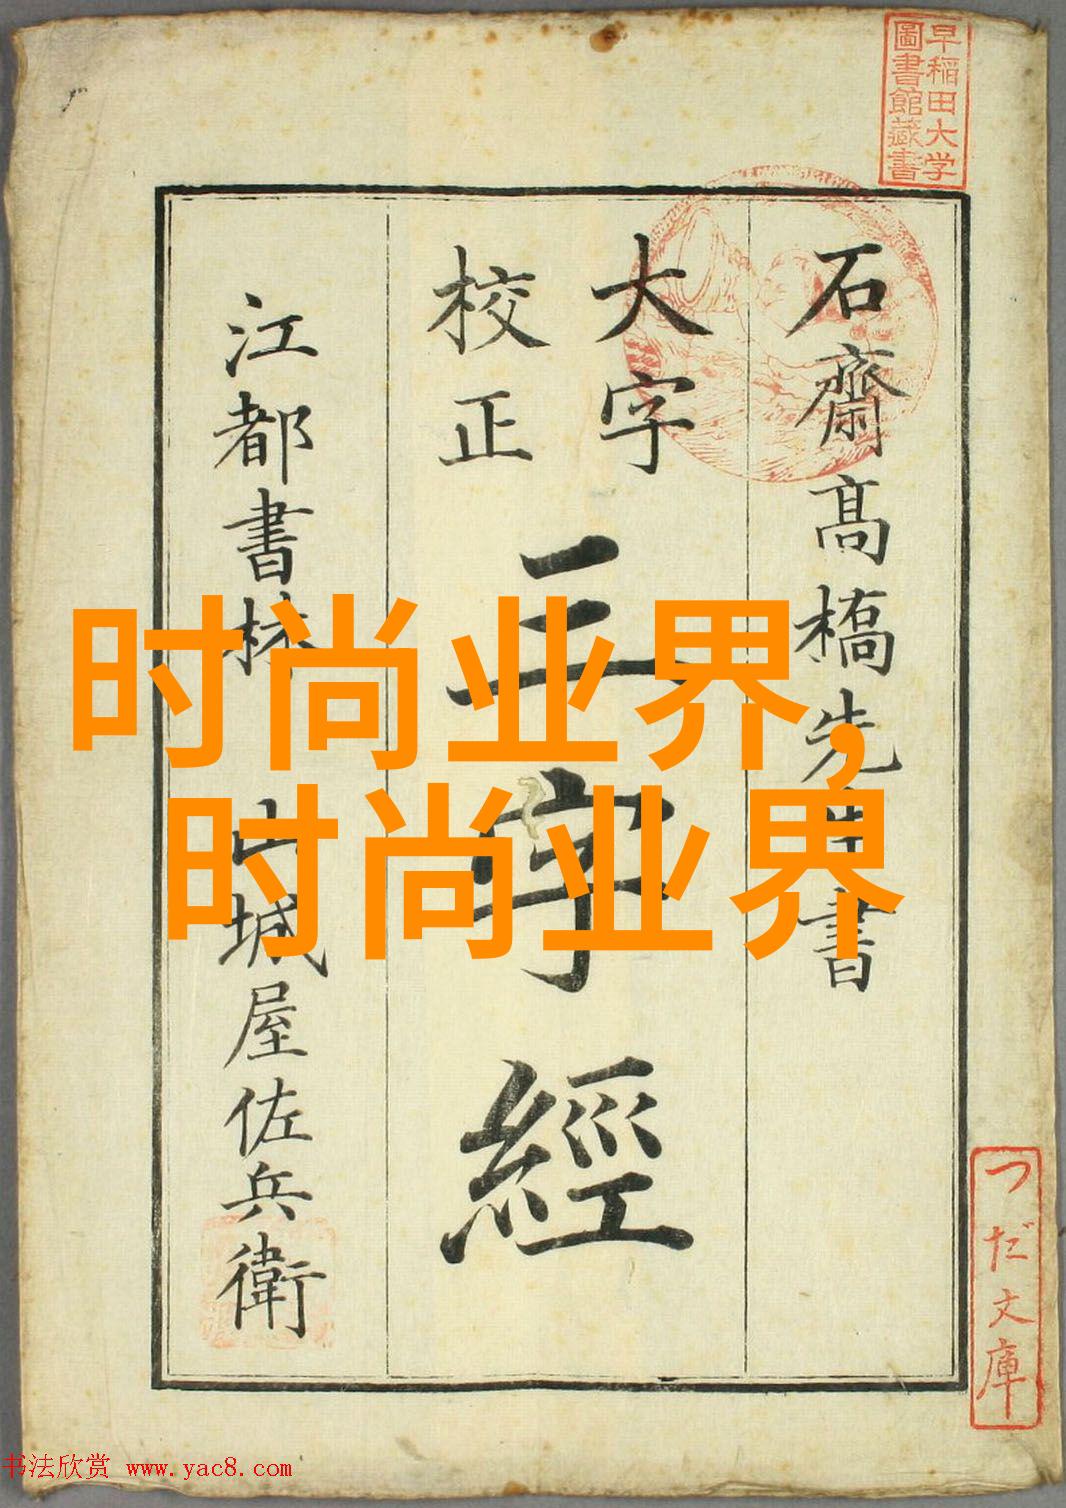 早稲田大学
圖書館藏書
石齋髙橋先生書
大字
校正
三字經
江都書林 山城屋佐兵衛
时尚业界,
时尚业界
つだ文庫
书法欣赏 www.yac8.com